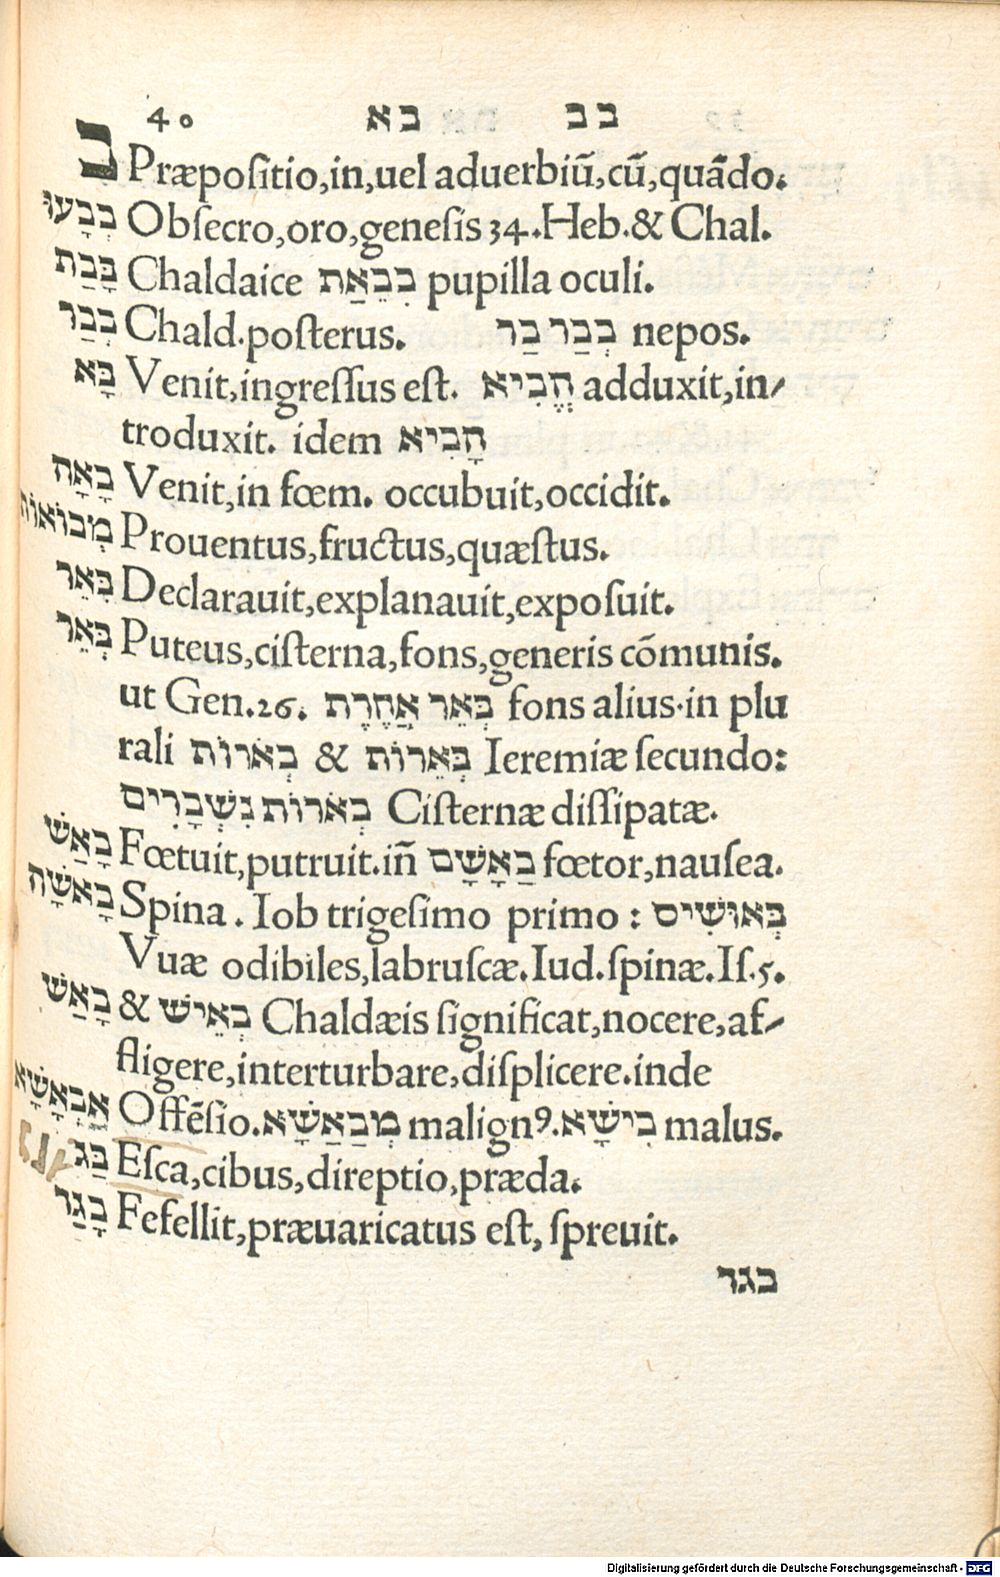 40 בא בב
ב Præpositio,in,uel aduerbiũ,cũ,quãdo.
בְּבָעוּ Obsecro,oro,genesis 34.Heb.& Chal.
בָּבַת Chaldaice בִּבֵאַת pupilla oculi.
בְּבַר Chald.posterus. בְּבַר בַר nepos.
בָּא Venit,ingressus est. הֱבִיא adduxit,in-
troduxit. idem הָבִיא
בָאָה Venit,in fœm. occubuit,occidit.
מְבוֹאוֹת Prouentus,fructus,quæstus.
בִּאֵר Declarauit,explanauit,exposuit.
בְּאֵר Puteus,cisterna,fons,generis cõmunis.
ut Gen.26. בְּאֵר אֲחֶרֶת fons alius·in plu
rali בְּאֹרוֹת & בְּאֵרוֹת Ieremiæ secundo:
בְּאֹרוֹת נִשְׁבָּרִים Cisternæ dissipatæ.
בָאַשׁ Fœtuit,putruit.iñ בַאָשָׁם fœtor,nausea.
בָאשָׁה Spina. Iob trigesimo primo : בְּאוּשִׁים
Vuæ odibiles,labruscæ.Iud.spinæ.Is.5.
בָאַשׁ & בְּאֵישׁ Chaldæis significat,nocere,af-
fligere,interturbare,displicere.inde
אֲבְאָשָׁא Offẽsio.מְבַאַשָׁא malignꝰ.בִישָׁא malus.
בַּג Esca,cibus,direptio,præda.
בָּגַד Fefellit,præuaricatus est, spreuit.
בגר
Digitalisierung gefördert durch die Deutsche Forschungsgemeinschaft - DFG